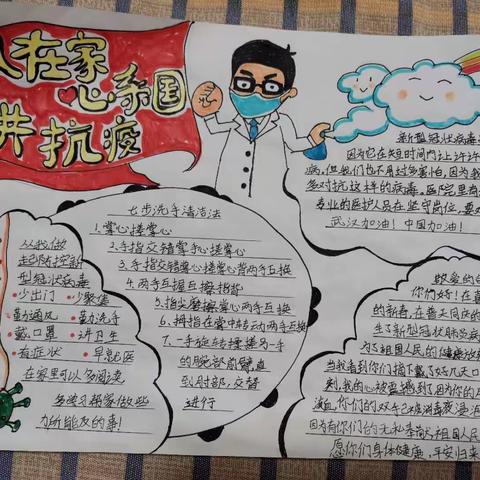 人在家
心系国
共抗疫
新型冠状病毒
因为它在短时间内让许许
病，但我们也不用过多害怕，因为我
多对抗这样的病毒。医院里有
专业的医护人员在坚守岗位，要
武汉加油！中国加油！
七步洗手清洁法
1.掌心搓掌心
2.手指交错掌心搓掌心
3.手指交错掌心搓掌背两手互换
4.两手互握互擦指背
5.指尖摩擦掌心两手互换
6.拇指在掌中转动两手互换
7.一手旋转搓揉另一手
的腕部前臂直
到肘部，交替
进行
从我做
起防控新
型冠状病毒
少出门 少聚集
勤通风 勤洗手
戴口罩 讲卫生
有症状 早就医
在家里可以多阅读
多学习搬家做些
力所能及的事！
敬爱的
你们好！在
的新春，在普天同庆的
生了新型冠状肺炎
为了祖国人民的健康
当我看到你们摘下戴了好几天口
刻，我的心被震撼到了因为你的
满血，你们的双手已
因为有你们的无私奉献，祖国人民
愿你们身体健康，平安归来